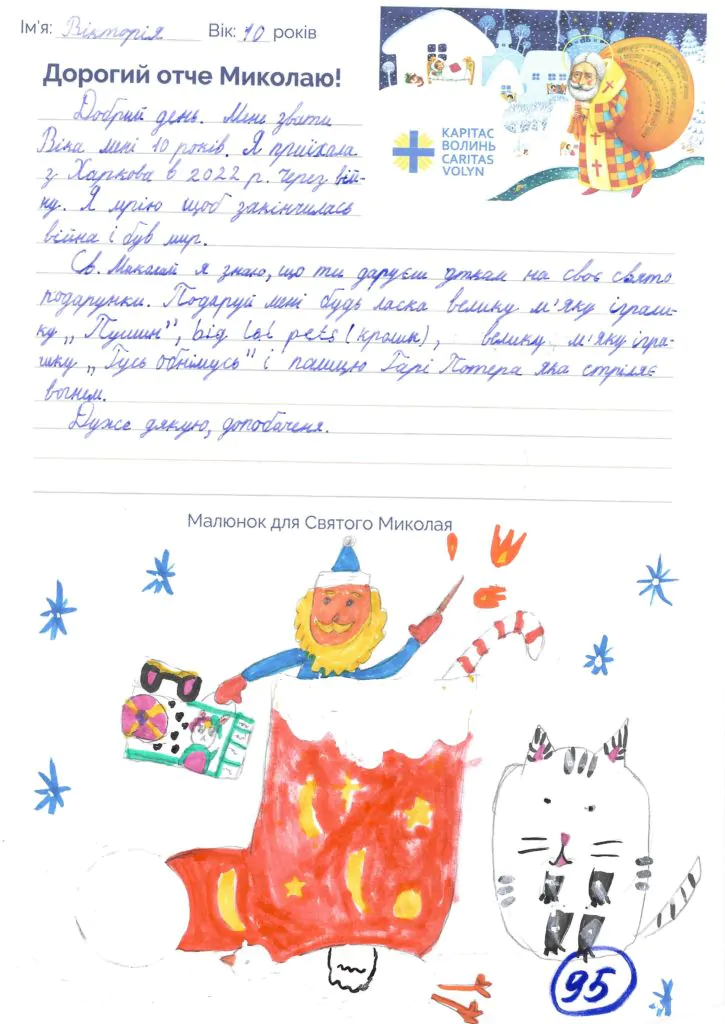 Ім'я: Вікторія Вік: 10 років
Дорогий отче Миколаю!
КАРІТАС
ВОЛИНЬ
CARITAS
VOLYN
Добрий день. Мене звати
Віка мені 10 років. Я приїхала
з Харкова в 2022 р. через вій-
ну. Я мрію щоб закінчилась
війна і був мир.
Св. Миколай я знаю, що ти даруєш діткам на своє свято
подарунки. Подаруй мені будь ласка велику м'яку іграш-
ку „Пушин", big lol pets (крошки), велику м'яку ігра-
шку „Гусь обнімусь" і палицю Гарі Потера яка стріляє
вогнем.
Дуже дякую, допобаченя.
Малюнок для Святого Миколая
95